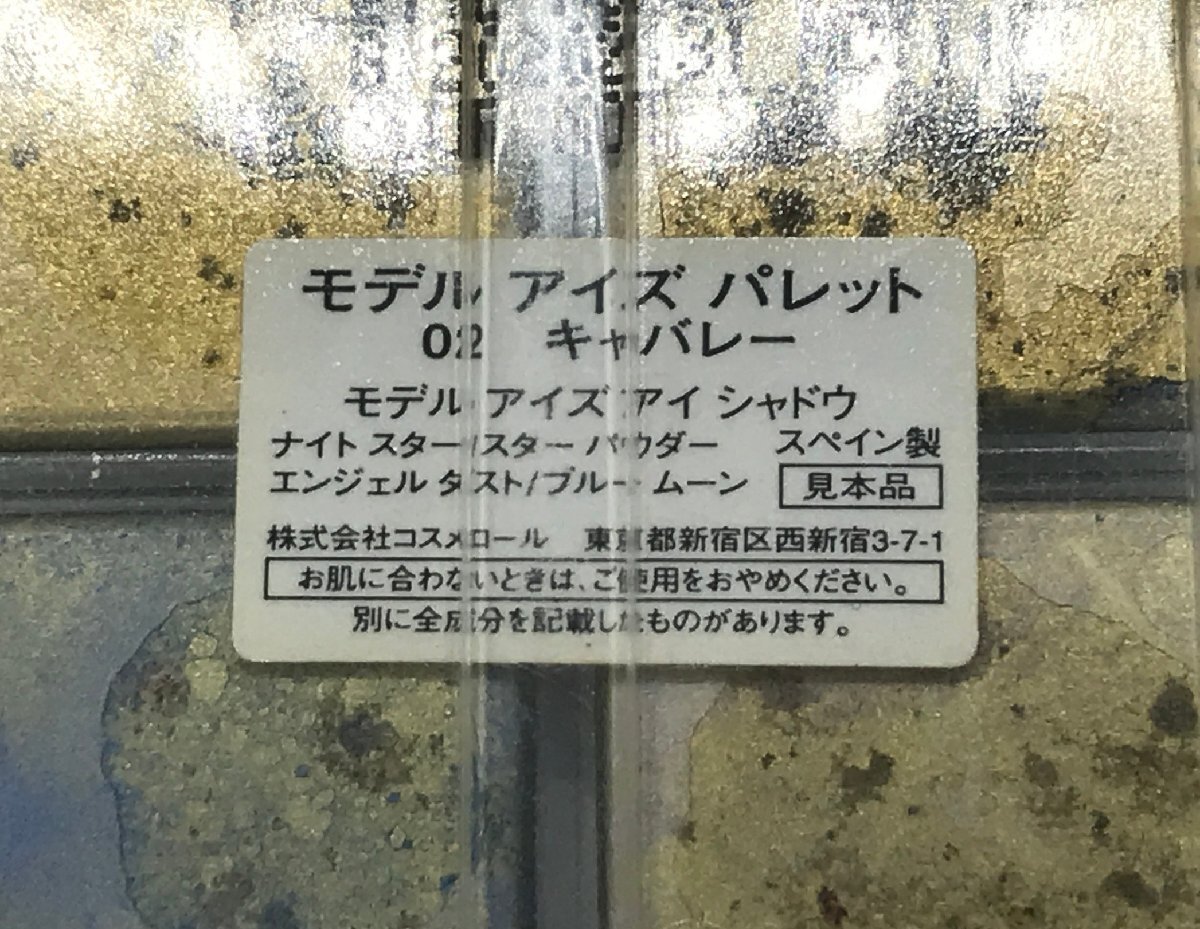 モデル アイズ パレット
02 キャバレー
モデル アイズ アイ シャドウ
ナイト スター/スター パウダー スペイン製
エンジェル ダスト/ブルー ムーン 見本品
株式会社コスメロール 東京都新宿区西新宿3-7-1
お肌に合わないときは、ご使用をおやめください。
別に全成分を記載したものがあります。